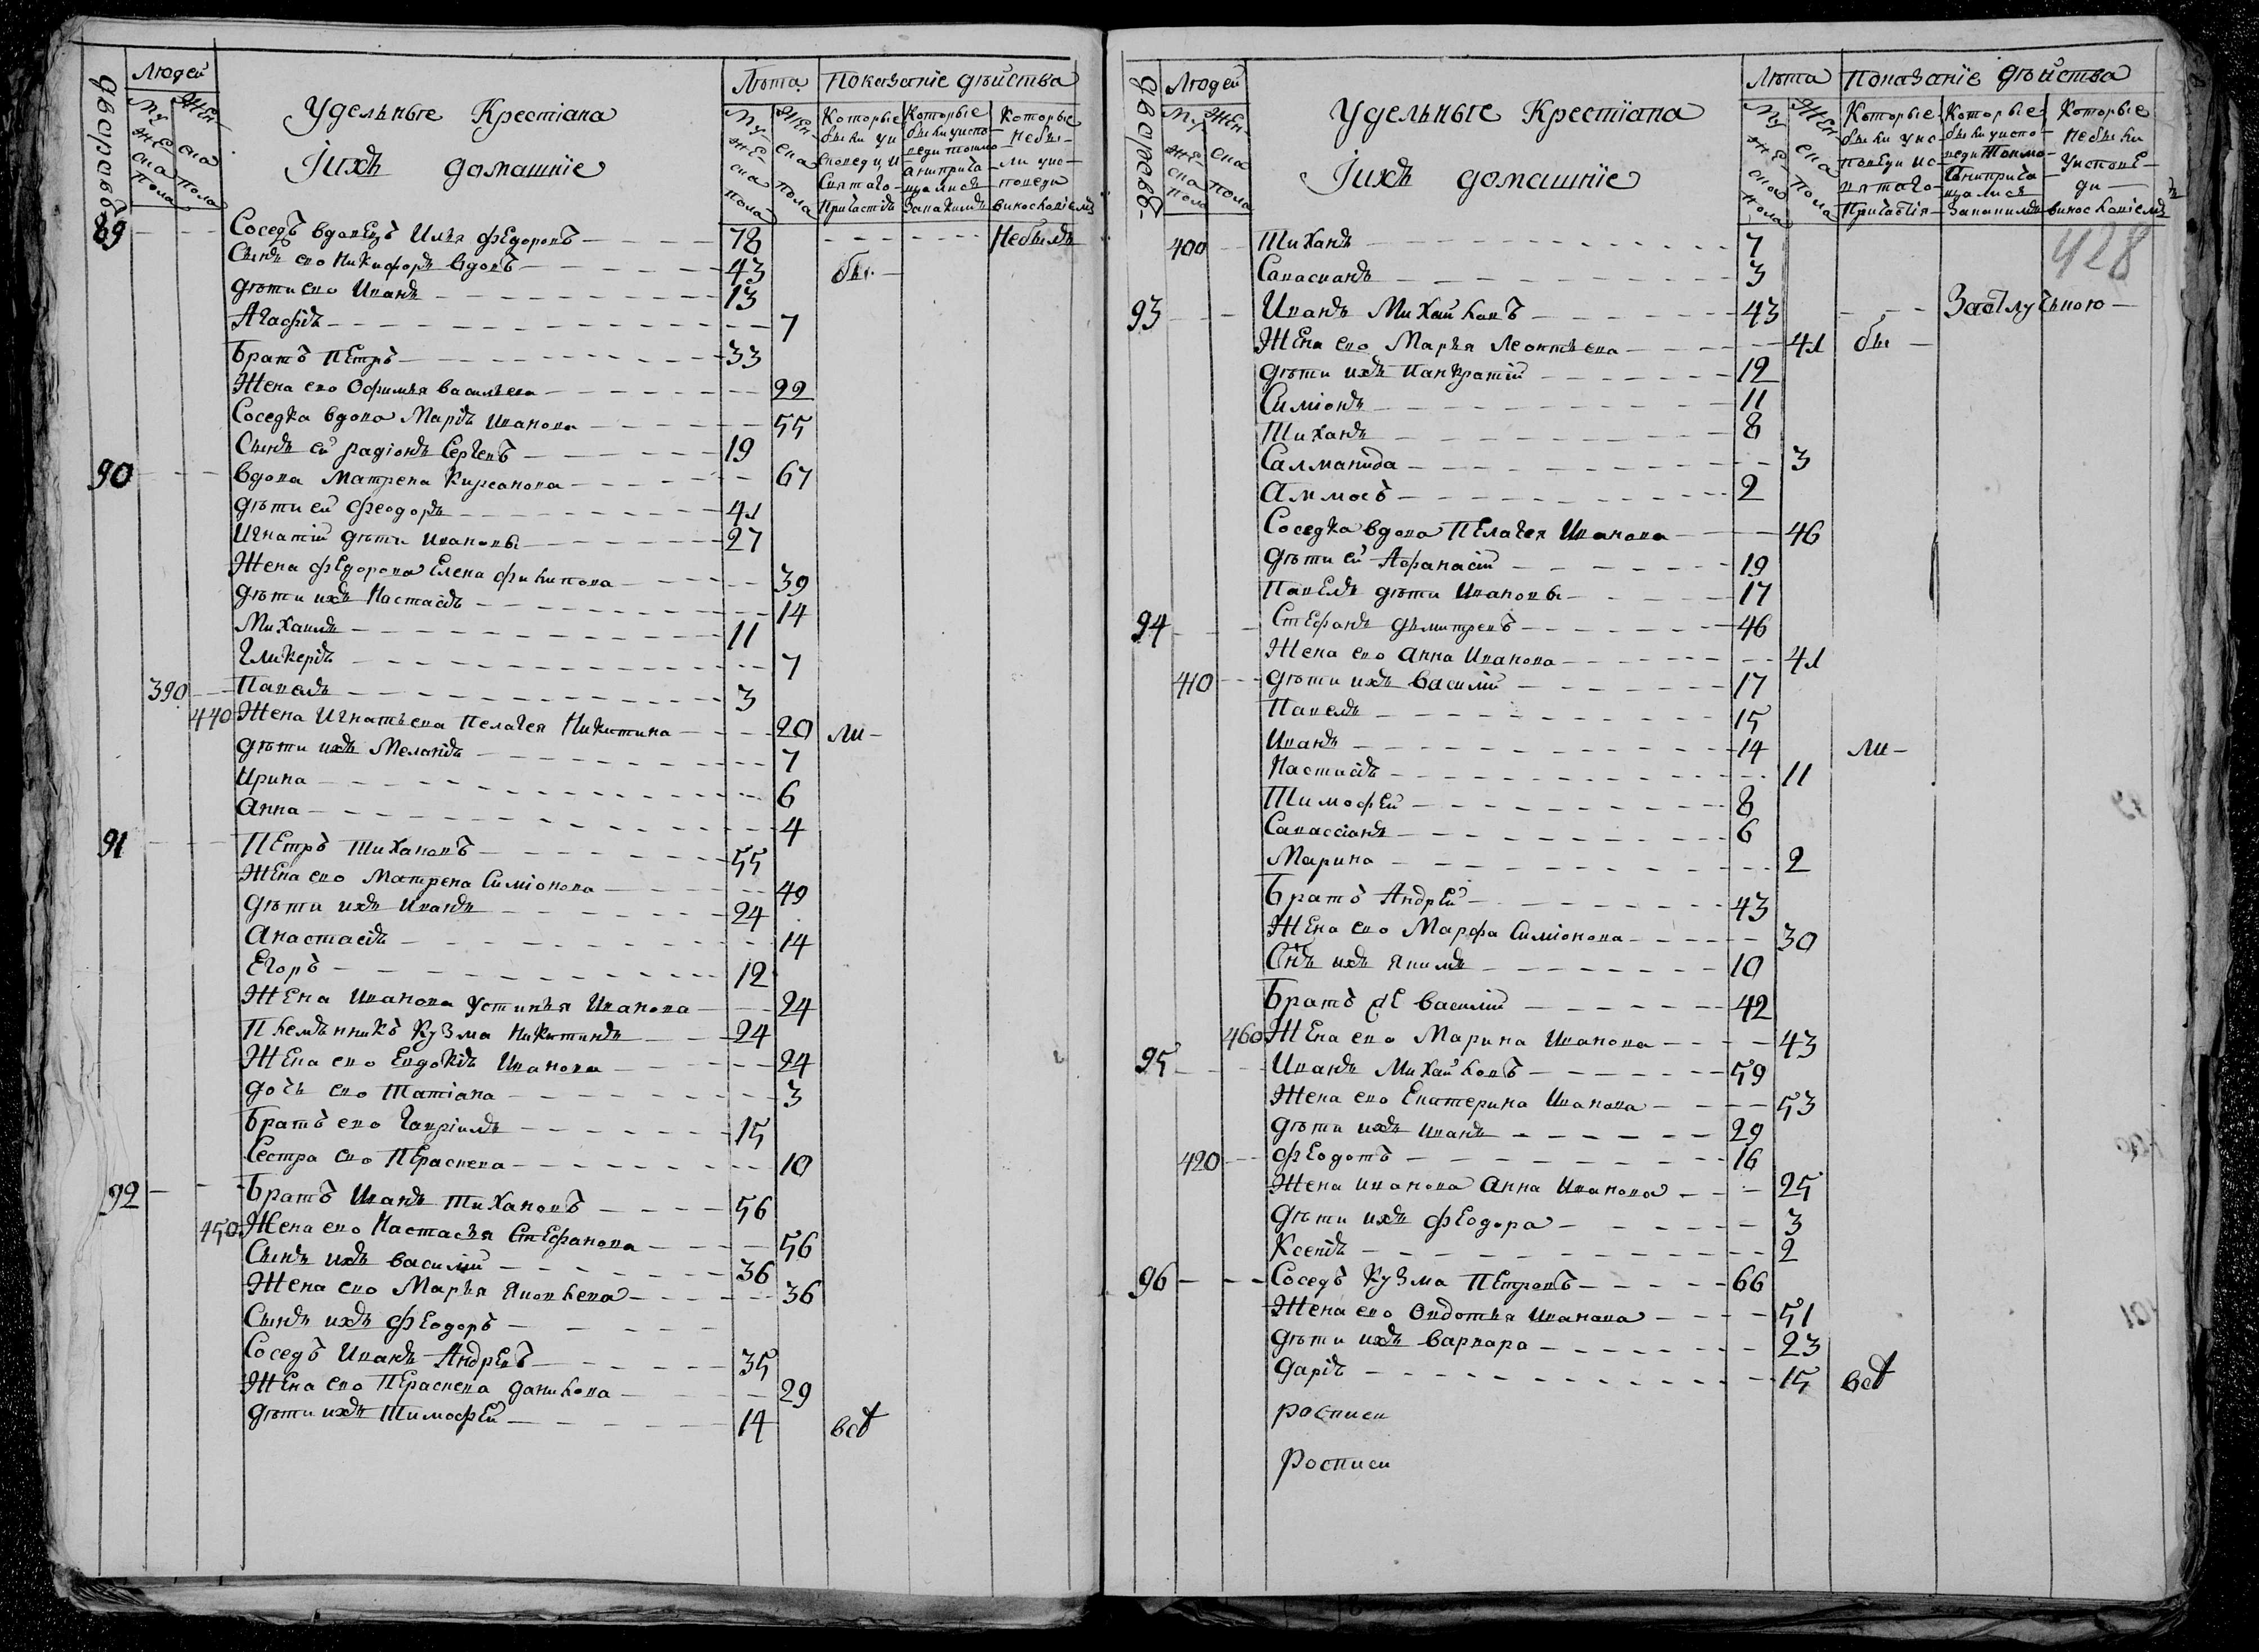 дворовъ
Людей
Мужеска пола
Женска пола
Удельныге Крестiана
Iихъ домашнiе
Лѣта
Мужеска пола
Женска пола
Показанiе дѣиства
Которые были уисповеди и Святаго Причастiя
Которые были уисповеди токмо анипричащалися Запакимъ
Которые небыли уисповеди
89 Соседъ вдовецъ Илья Федоровъ 78 Небылъ
Сынъ ево Никифоръ вдовъ 43 бы
дѣти ево Иванъ 13
Агафiя 7
Братъ Петръ 33
Жена ево Офимья васильева 22
Соседка вдова Марiя Иванова 55
Сынъ ей Радiонъ Сергеевъ 19
90 вдова Матрена Кирсанова 67
дѣти ей Феодоръ 41
Игнатiй дѣти Ивановы 27
Жена Федорова Елена филипова 39
дѣти ихъ Настасiя 14
Михаилъ 11
Гликерiя 7
390 Павелъ 3
440 Жена Игнатьева Пелагея Никитина 20 ли
дѣти ихъ Меланiя 7
Ирина 6
Анна 4
91 Петръ Тихановъ 55
Жена ево Матрена Симiонова 49
дѣти ихъ Иванъ 24
Анастасiя 14
Егоръ 12
Жена Иванова Устинья Иванова 24
Племѣнникъ Кузма Никитинъ 24
Жена ево Евдокiя Иванова 24
дочь ево Татiана 3
Братъ ево Гаврiилъ 15
Сестра ево Пераскева 10
92 Братъ Иванъ Тихановъ 56
450 Жена ево Настасья Стефанова 56
Сынъ ихъ василiй 36
Жена ево Марья Яковлева 36
Сынъ ихъ Феодоръ
Соседъ Иванъ Андреевъ 35
Жена ево Пераскева данилова 29
дѣти ихъ Тимофей 14 всѣ
дворовъ
Людей
Мужеска пола
Женска пола
Удельные Крестiана
Iихъ домашнiе
Лѣта
Мужеска пола
Женска пола
Показанiе дѣиства
Которые были уисповеди иСвятаго Причастiя
Которые были уисповеди Токмо Анипричащалися
Которые небыли Уисповеди
428
400 Тиханъ 7
Савасианъ 3
93 Иванъ Михайловъ 43 Заотлучьною
Жена ево Марья Леонтьева 41 бы
дѣти ихъ Панкратiй 12
Симiонъ 11
Тиханъ 8
Салманида 3
Аммосъ 2
Соседка вдова Пелагея Иванова 46
дѣти ей Афанасiй 19
Павелъ дѣти Ивановы 17
94 Стефанъ дьмитревъ 46
Жена ево Анна Иванова 41
410 дѣти ихъ василiй 17
Павелъ 15
Иванъ 14 ли
Настасiя 11
Тимофей 8
Савассiанъ 6
Марина 2
Братъ Андрей 43
Жена ево Марфа Симiонова 30
Снъ ихъ Якимъ 10
Братъ же василiй 42
460 Жена ево Марина Иванова 43
95 Иванъ Михайловъ 59
Жена ево Екатерина Иванова 53
дѣти ихъ Иванъ 29
420 Феодотъ 16
Жена Иванова Анна Иванова 25
дѣти ихъ Феодора 3
Ксенiя 2
96 Соседъ Кузма Петровъ 66
Жена ево Овдотья Иванова 51
дѣти ихъ варвара 23
дарiя 15 всѣ
росписи
росписи